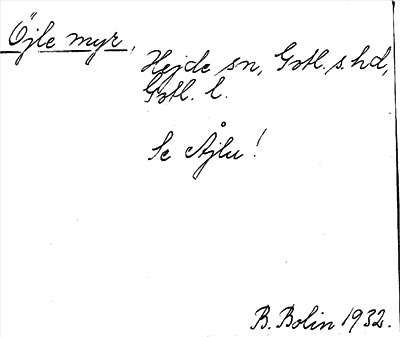 Öjle myr,
Hejde sn, Gotl. s. hd,
Gotl. l.
Se Åjlu!
B. Bolin 1932.